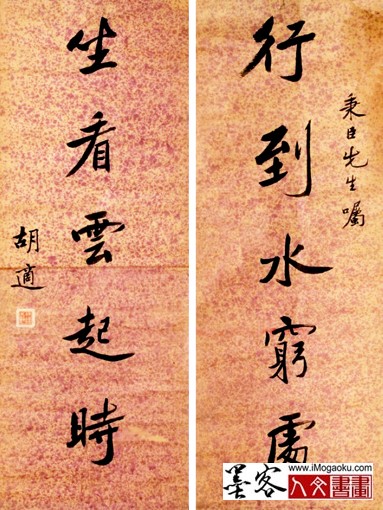 秉臣先生囑
行到水窮處
坐看雲起時
胡適
墨客
www.iMogaoku.com
人文書畫